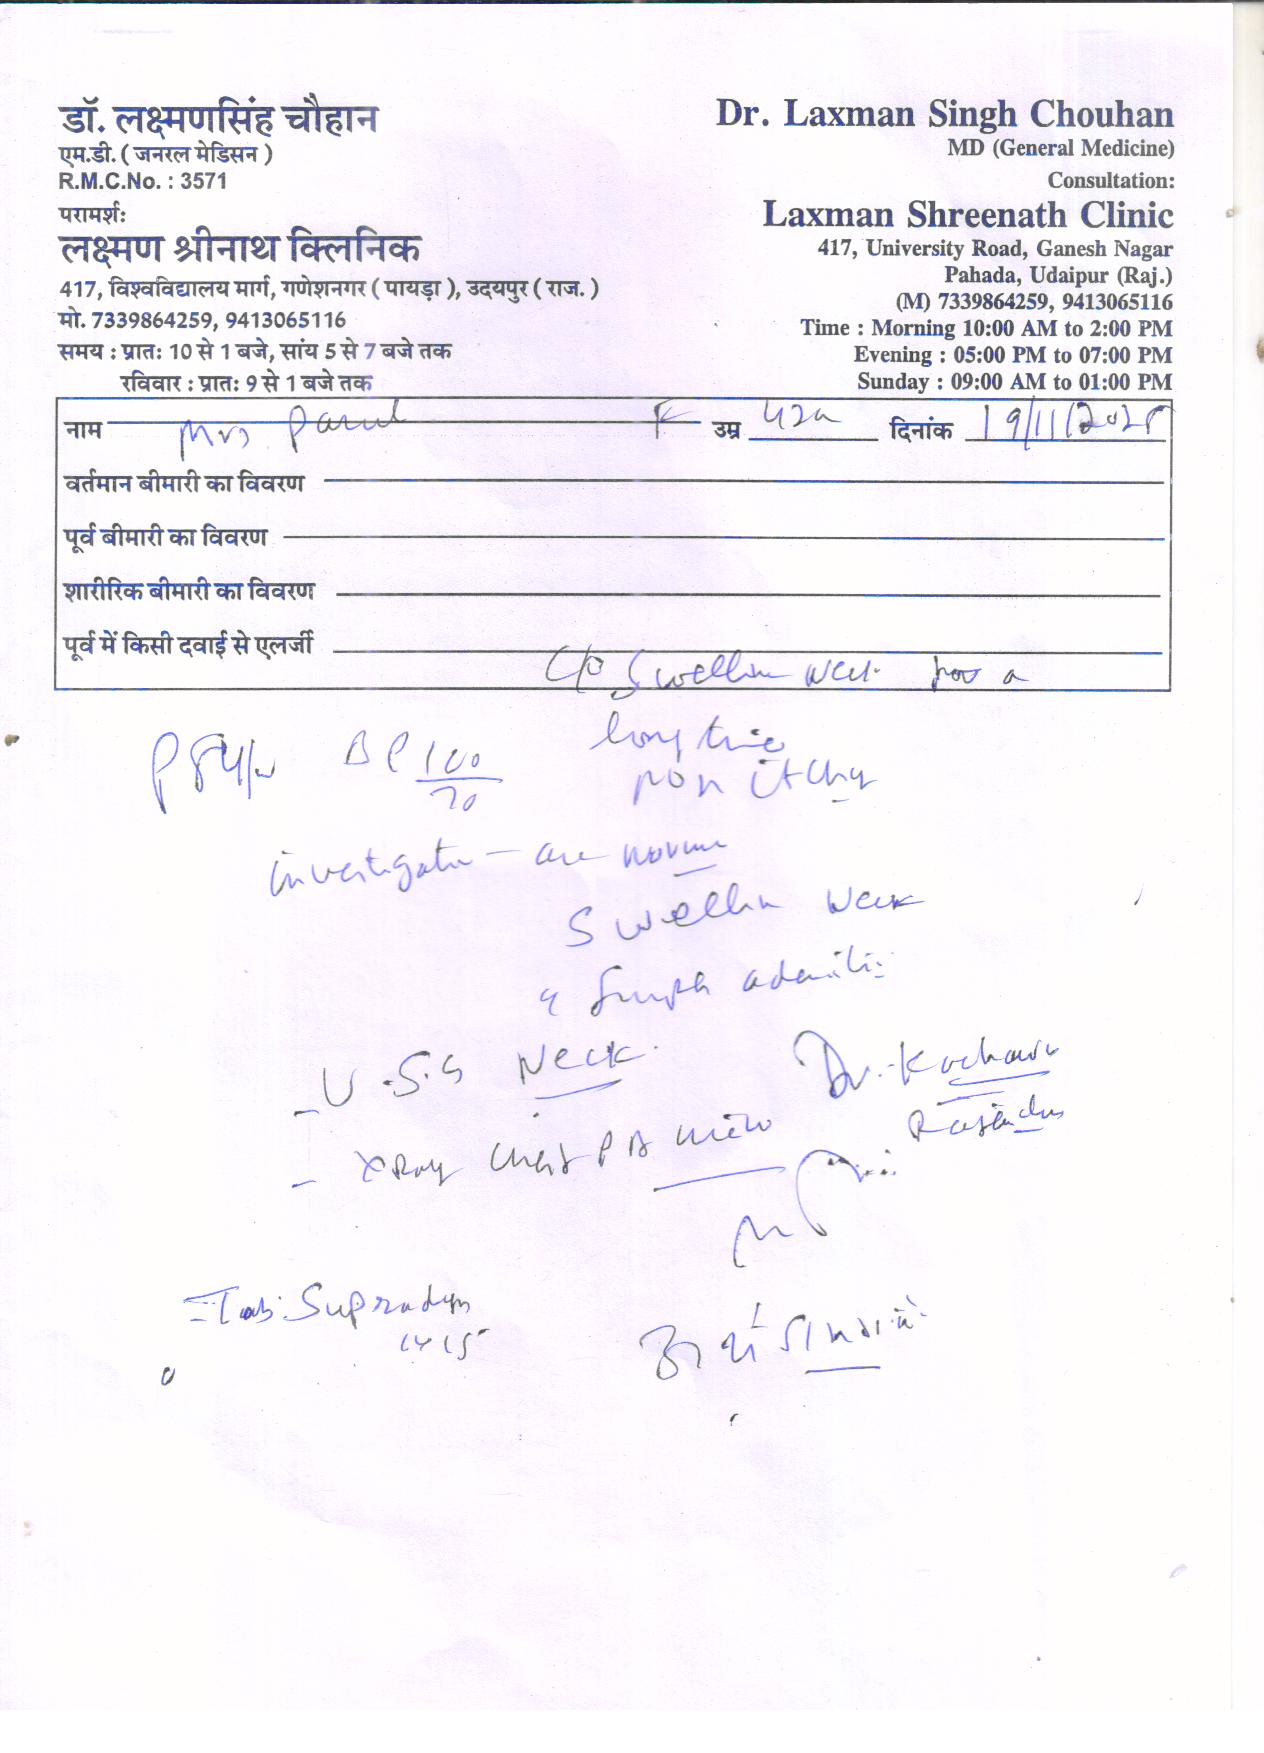 डॉ. लक्ष्मणसिंह चौहान
एम.डी. ( जनरल मेडिसन )
R.M.C.No. : 3571
परामर्श:
लक्ष्मण श्रीनाथ क्लिनिक
417, विश्वविद्यालय मार्ग, गणेशनगर ( पायड़ा ), उदयपुर ( राज. )
मो. 7339864259, 9413065116
समय : प्रातः 10 से 1 बजे, सांय 5 से 7 बजे तक
रविवार : प्रातः 9 से 1 बजे तक
Dr. Laxman Singh Chouhan
MD (General Medicine)
Consultation:
Laxman Shreenath Clinic
417, University Road, Ganesh Nagar
Pahada, Udaipur (Raj.)
(M) 7339864259, 9413065116
Time : Morning 10:00 AM to 2:00 PM
Evening : 05:00 PM to 07:00 PM
Sunday : 09:00 AM to 01:00 PM
नाम Mrs Parul F उम्र 42 दिनांक 19/11/2025
वर्तमान बीमारी का विवरण
पूर्व बीमारी का विवरण
शारीरिक बीमारी का विवरण
पूर्व में किसी दवाई से एलर्जी
C/o Swelling Neck for a
long time
P 84/m BP 100/70
non itchy
investigation - are normal
Swelling Neck
- U.S.G Neck
Dr. Kochar
Rajendra
- X Ray Chest PA view
- Tab. Supradyn
1x15